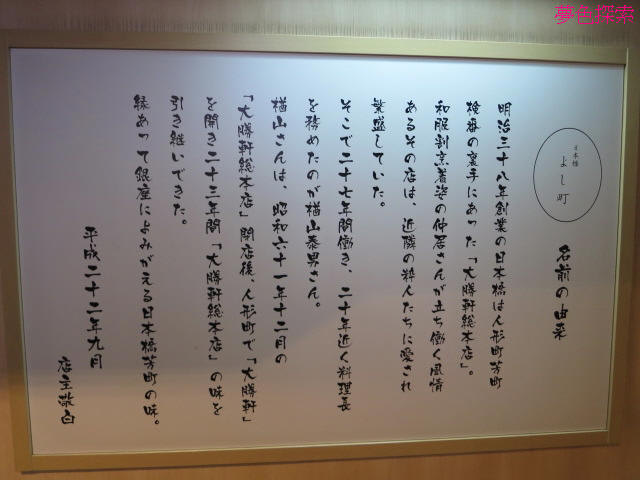 夢色探索
日本橋
よし町
名前の由来
明治三十八年創業の日本橋は人形町芳町
検番の裏手にあった「大勝軒総本店」。
和服割烹着姿の仲居さんが立ち働く風情
あるその店は、近隣の粋人たちに愛され
繁盛していた。
そこで二十七年間働き、二十年近く料理長
を務めたのが楢山泰男さん。
楢山さんは、昭和六十一年十二月の
「大勝軒総本店」閉店後、人形町で「大勝軒」
を開き二十三年間「大勝軒総本店」の味を
引き継いできた。
縁あって銀座によみがえる日本橋芳町の味。
平成二十二年九月
店主敬白